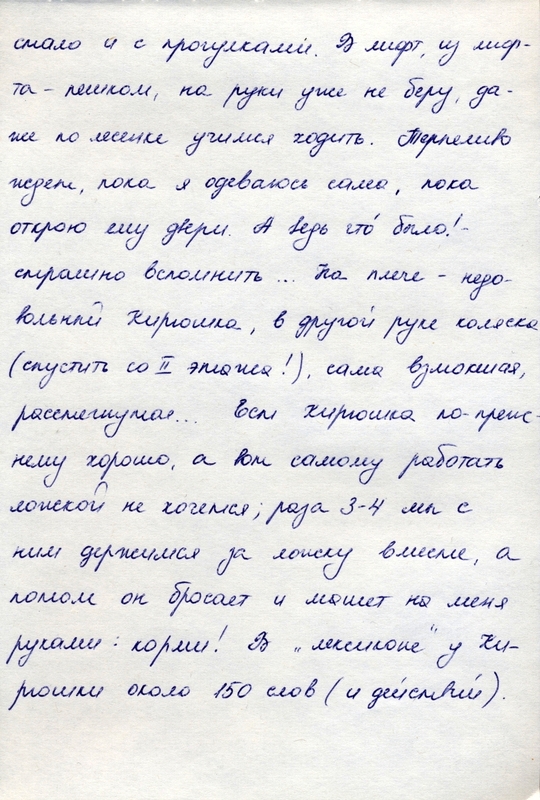 стало и с прогулками. В лифт, из лиф-
та - пешком, на руки уже не беру, да-
же по лесенке учимся ходить. Терпеливо
ждет, пока я одеваюсь сама, пока
открою ему двери. А ведь что было! -
страшно вспомнить... На плече - недо-
вольный Кирюшка, в другой руке коляска
(спустить со II этажа!), сама взмокшая,
расстегнутая... Ест Кирюшка по-преж-
нему хорошо, а вот самому работать
ложкой не хочется; раза 3-4 мы с
ним держимся за ложку вместе, а
потом он бросает и машет на меня
руками: корми! В „лексиконе" у Ки-
рюшки около 150 слов (и действий).